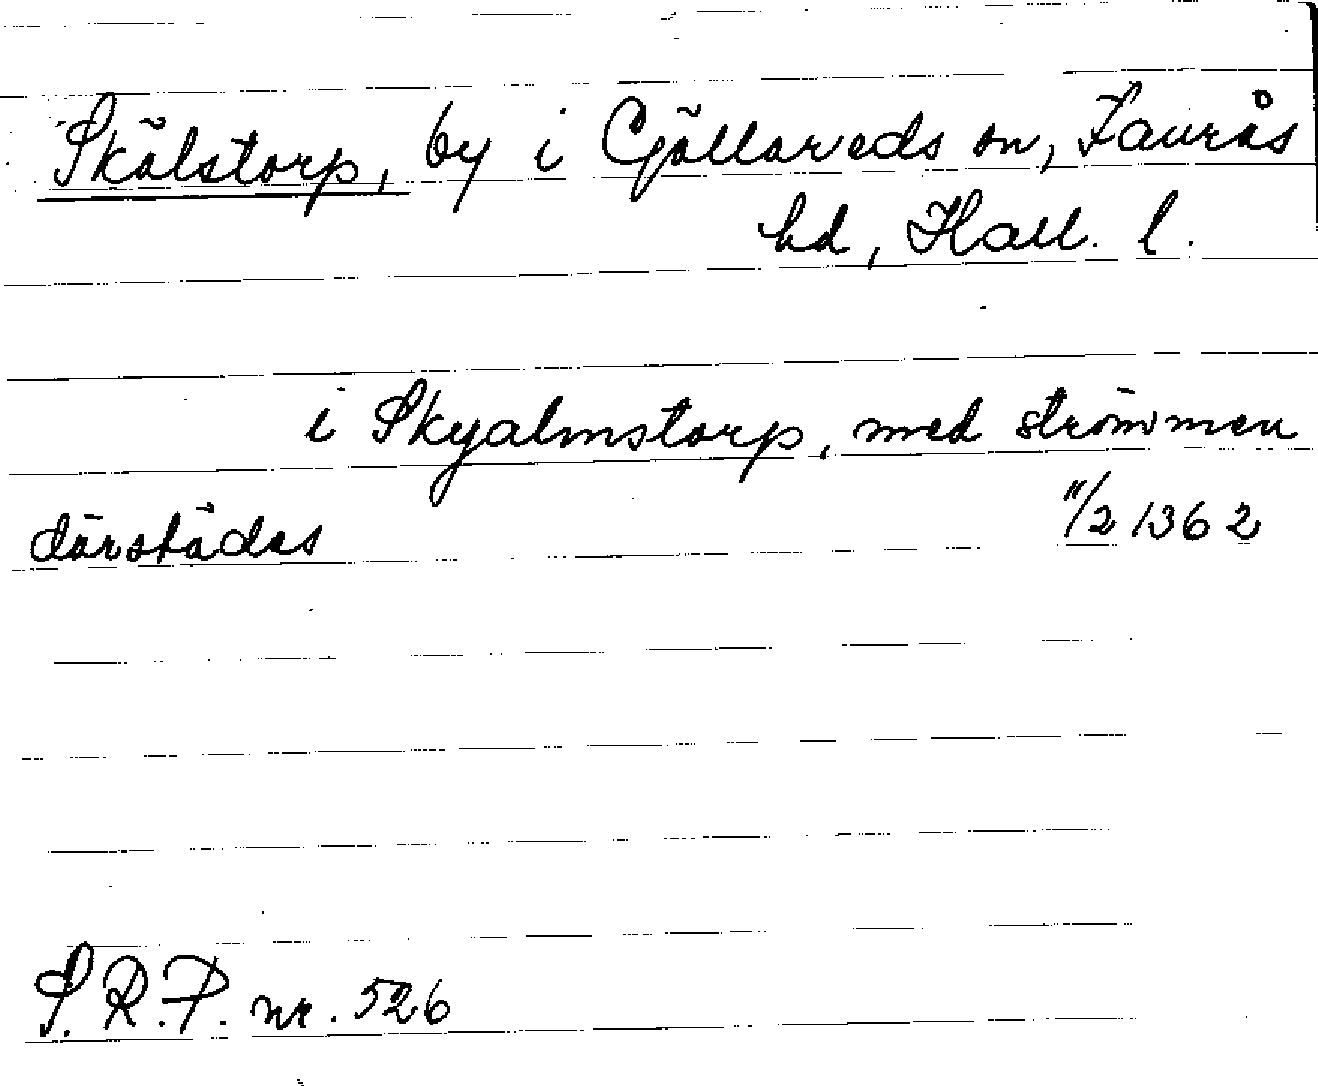 Skölstorp, by i Gjällareds sn, Faurås
hd, Hall. l.
i Skyalmstorp, med strömmen
därstädes 11/2 1362
S.R.P. nr. 526